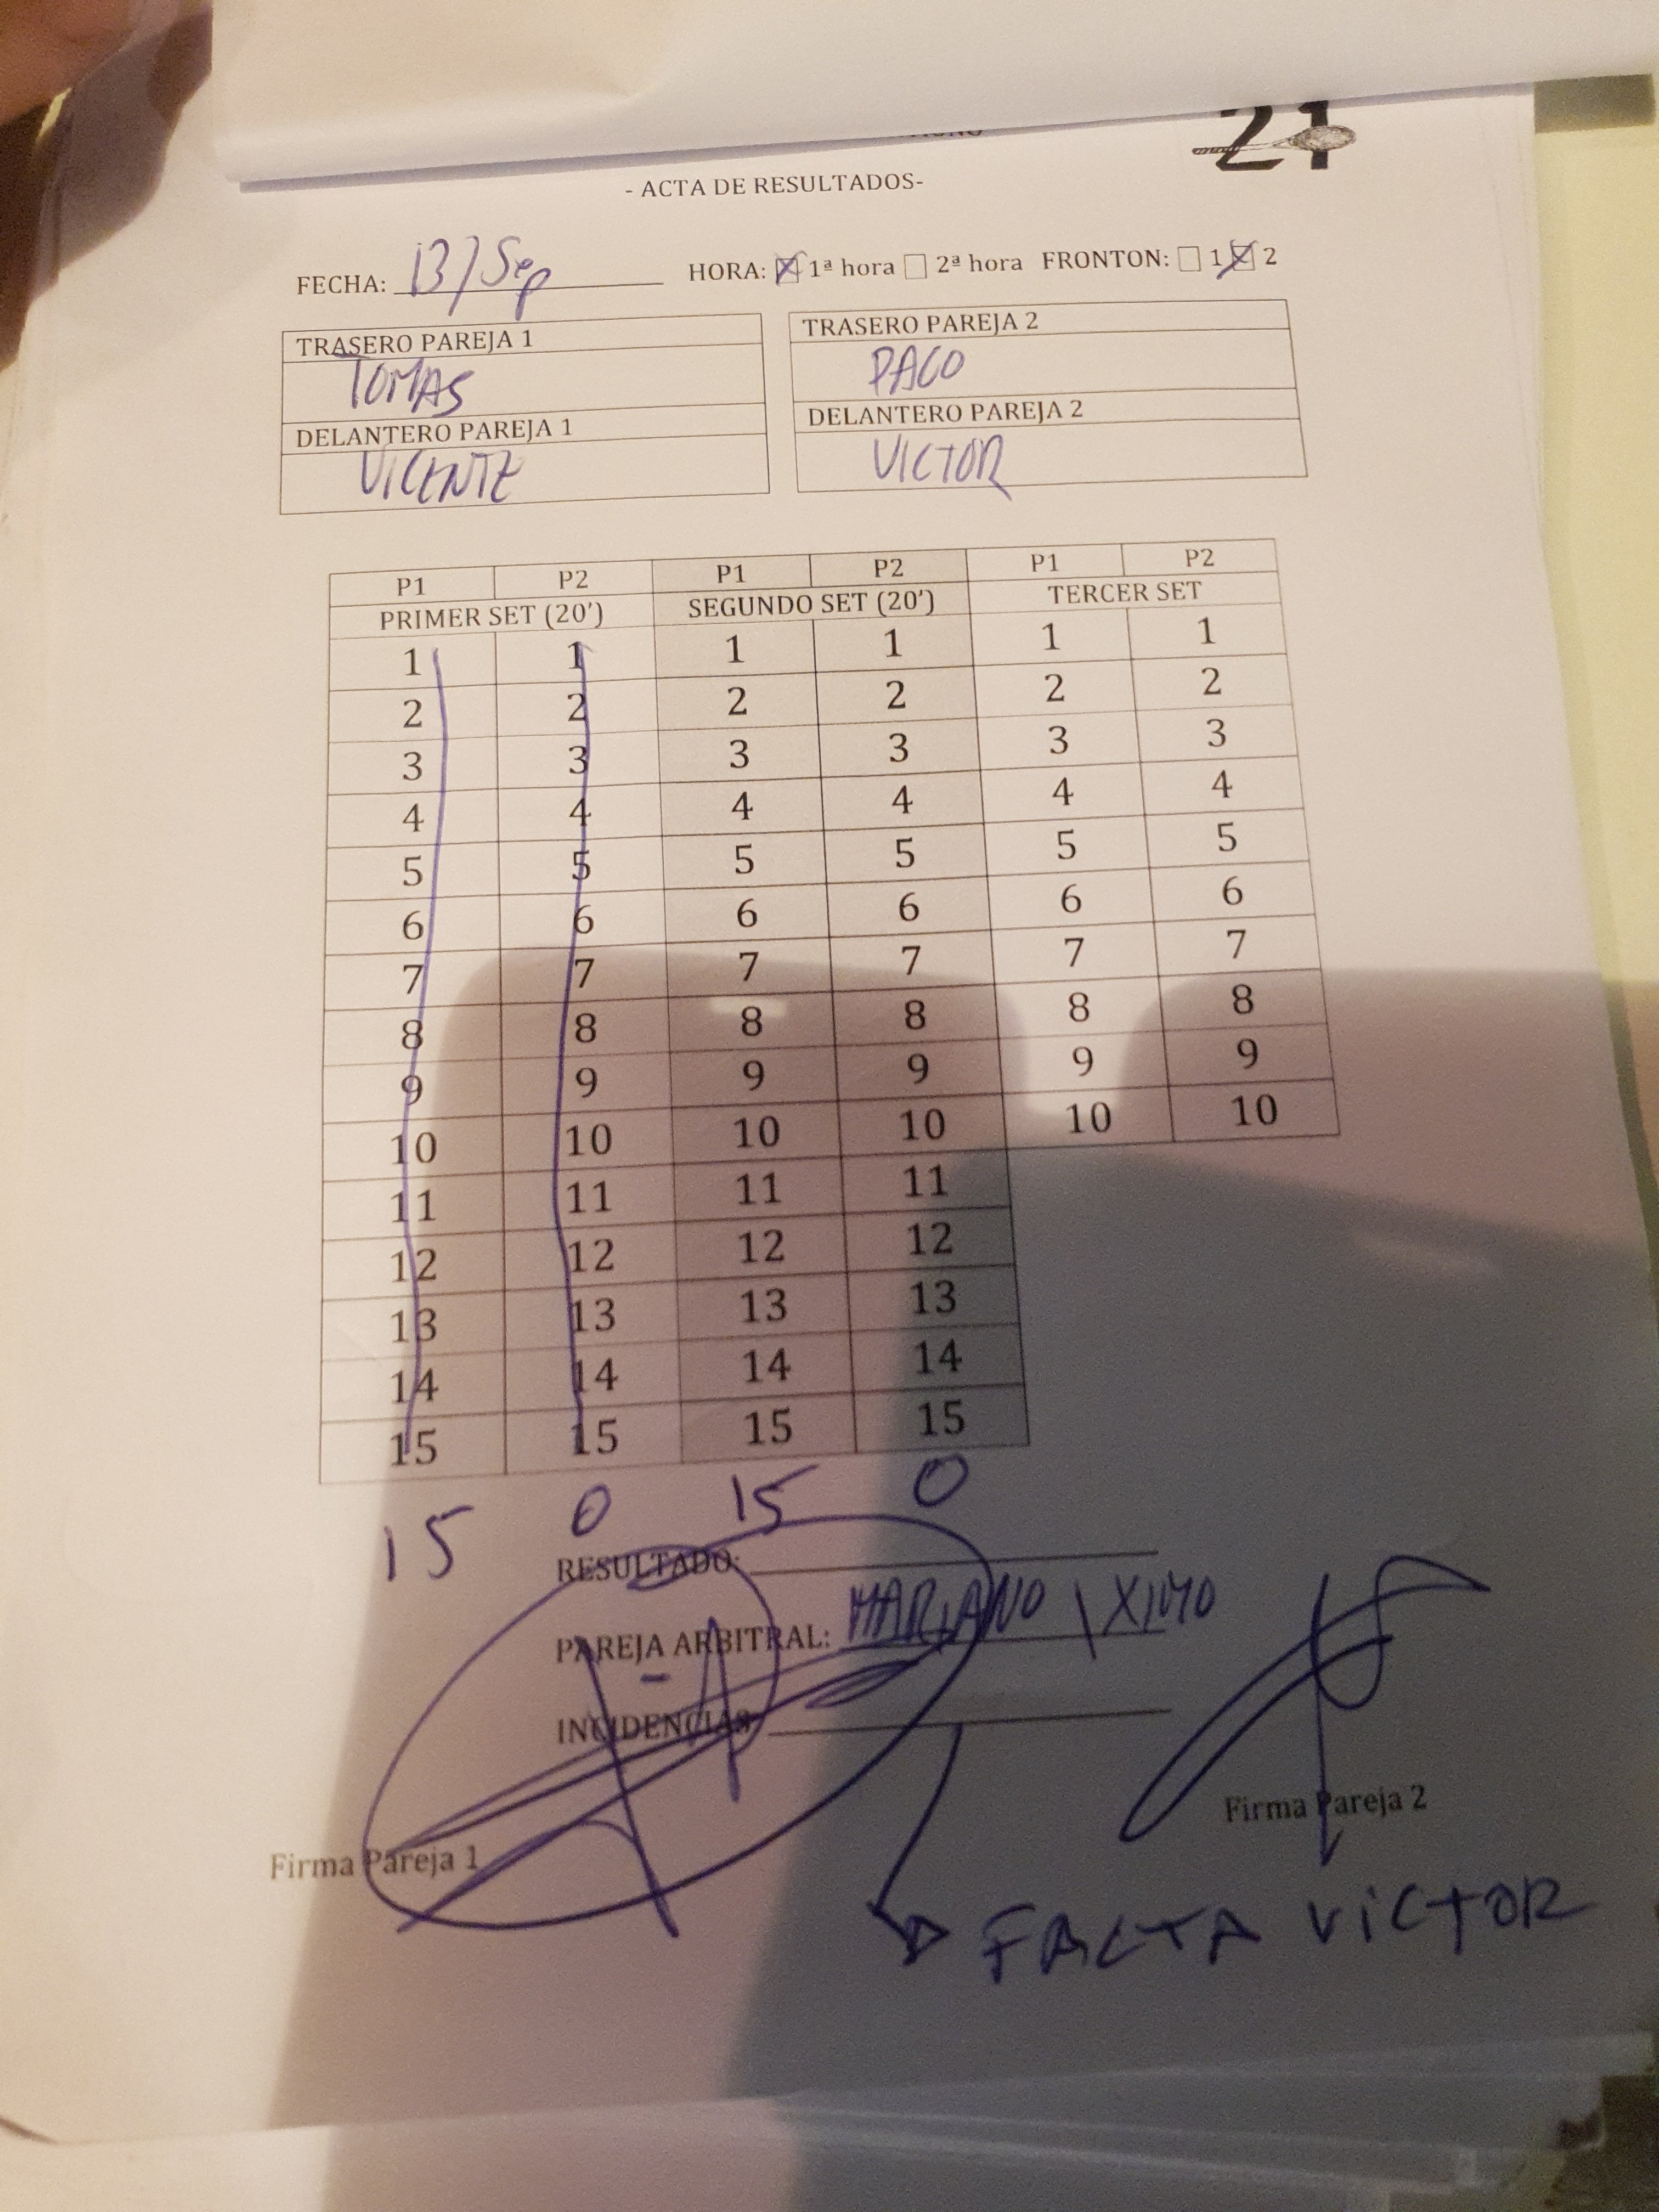 21
- ACTA DE RESULTADOS-
FECHA: 13/Sep HORA: 1ª hora 2ª hora FRONTON: 1 2
TRASERO PAREJA 1
TOMAS
DELANTERO PAREJA 1
VICENTE
TRASERO PAREJA 2
PACO
DELANTERO PAREJA 2
VICTOR
P1 P2 P1 P2 P1 P2
PRIMER SET (20') SEGUNDO SET (20') TERCER SET
1 1 1 1 1 1
2 2 2 2 2 2
3 3 3 3 3 3
4 4 4 4 4 4
5 5 5 5 5 5
6 6 6 6 6 6
7 7 7 7 7 7
8 8 8 8 8 8
9 9 9 9 9 9
10 10 10 10 10 10
11 11 11 11
12 12 12 12
13 13 13 13
14 14 14 14
15 15 15 15
15 0 15 0
RESULTADO:
PAREJA ARBITRAL: MARIANO \ XIMO
INCIDENCIAS:
Firma Pareja 1 Firma Pareja 2
FALTA VICTOR